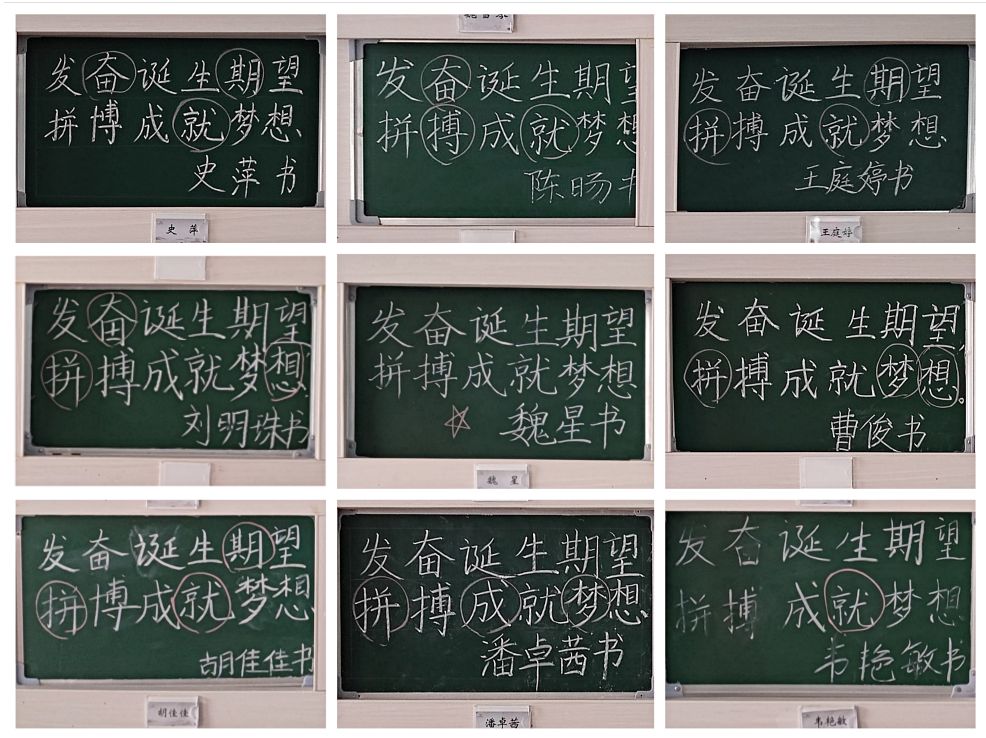 发奋诞生期望
拼博成就梦想
史萍书
史 萍
发奋诞生期望
拼搏成就梦想
陈旸书
发奋诞生期望
拼搏成就梦想
王庭婷书
王庭婷
发奋诞生期望
拼搏成就梦想
刘明珠书
发奋诞生期望
拼搏成就梦想
魏星书
魏 星
发奋诞生期望
拼搏成就梦想
曹俊书
发奋诞生期望
拼博成就梦想
胡佳佳书
胡佳佳
发奋诞生期望
拼搏成就梦想
潘卓茜书
潘卓茜
发奋诞生期望
拼搏成就梦想
韦艳敏书
韦艳敏